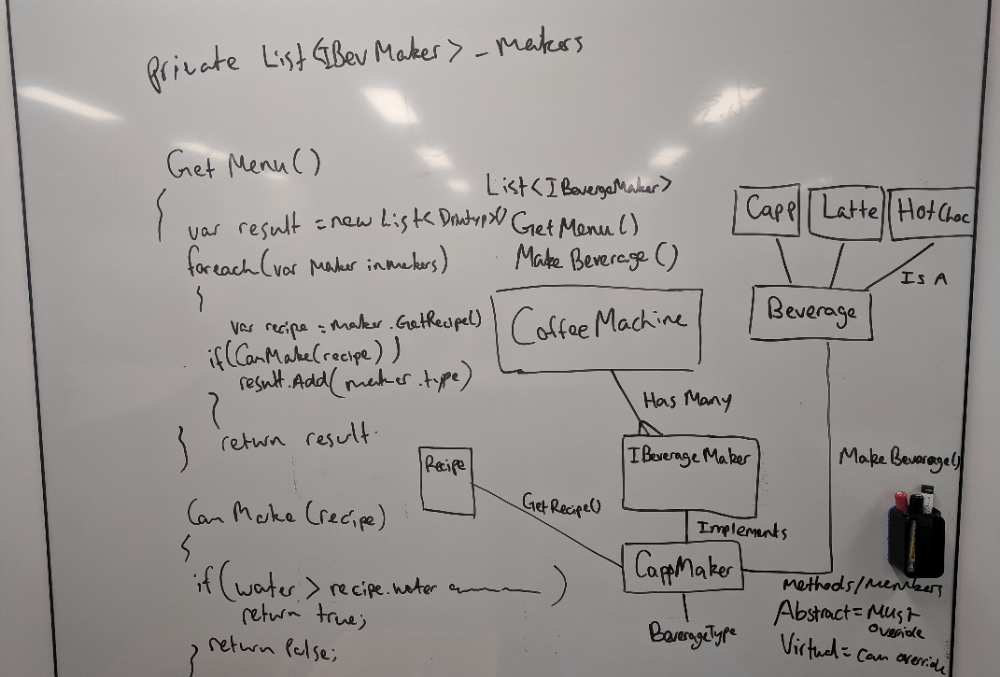 private List<IBevMaker> _makers
Get Menu()
{
var result = new List<Drinktype>()
foreach(var maker in makers)
{
var recipe = maker.GetRecipe()
if(CanMake(recipe))
result.Add(maker.type)
}
return result.
}
Can Make (recipe)
{
if(water > recipe.water
)
return true;
} return false;
List<IBevergeMaker>
GetMenu()
MakeBeverage()
CoffeeMachine
Has Many
IBeverageMaker
Implements
CappMaker
BeverageType
Recipe
GetRecipe()
Capp
Latte
HotChoc
Is A
Beverage
MakeBeverage()
Methods/Members
Abstract = Must
override
Virtual = Can override